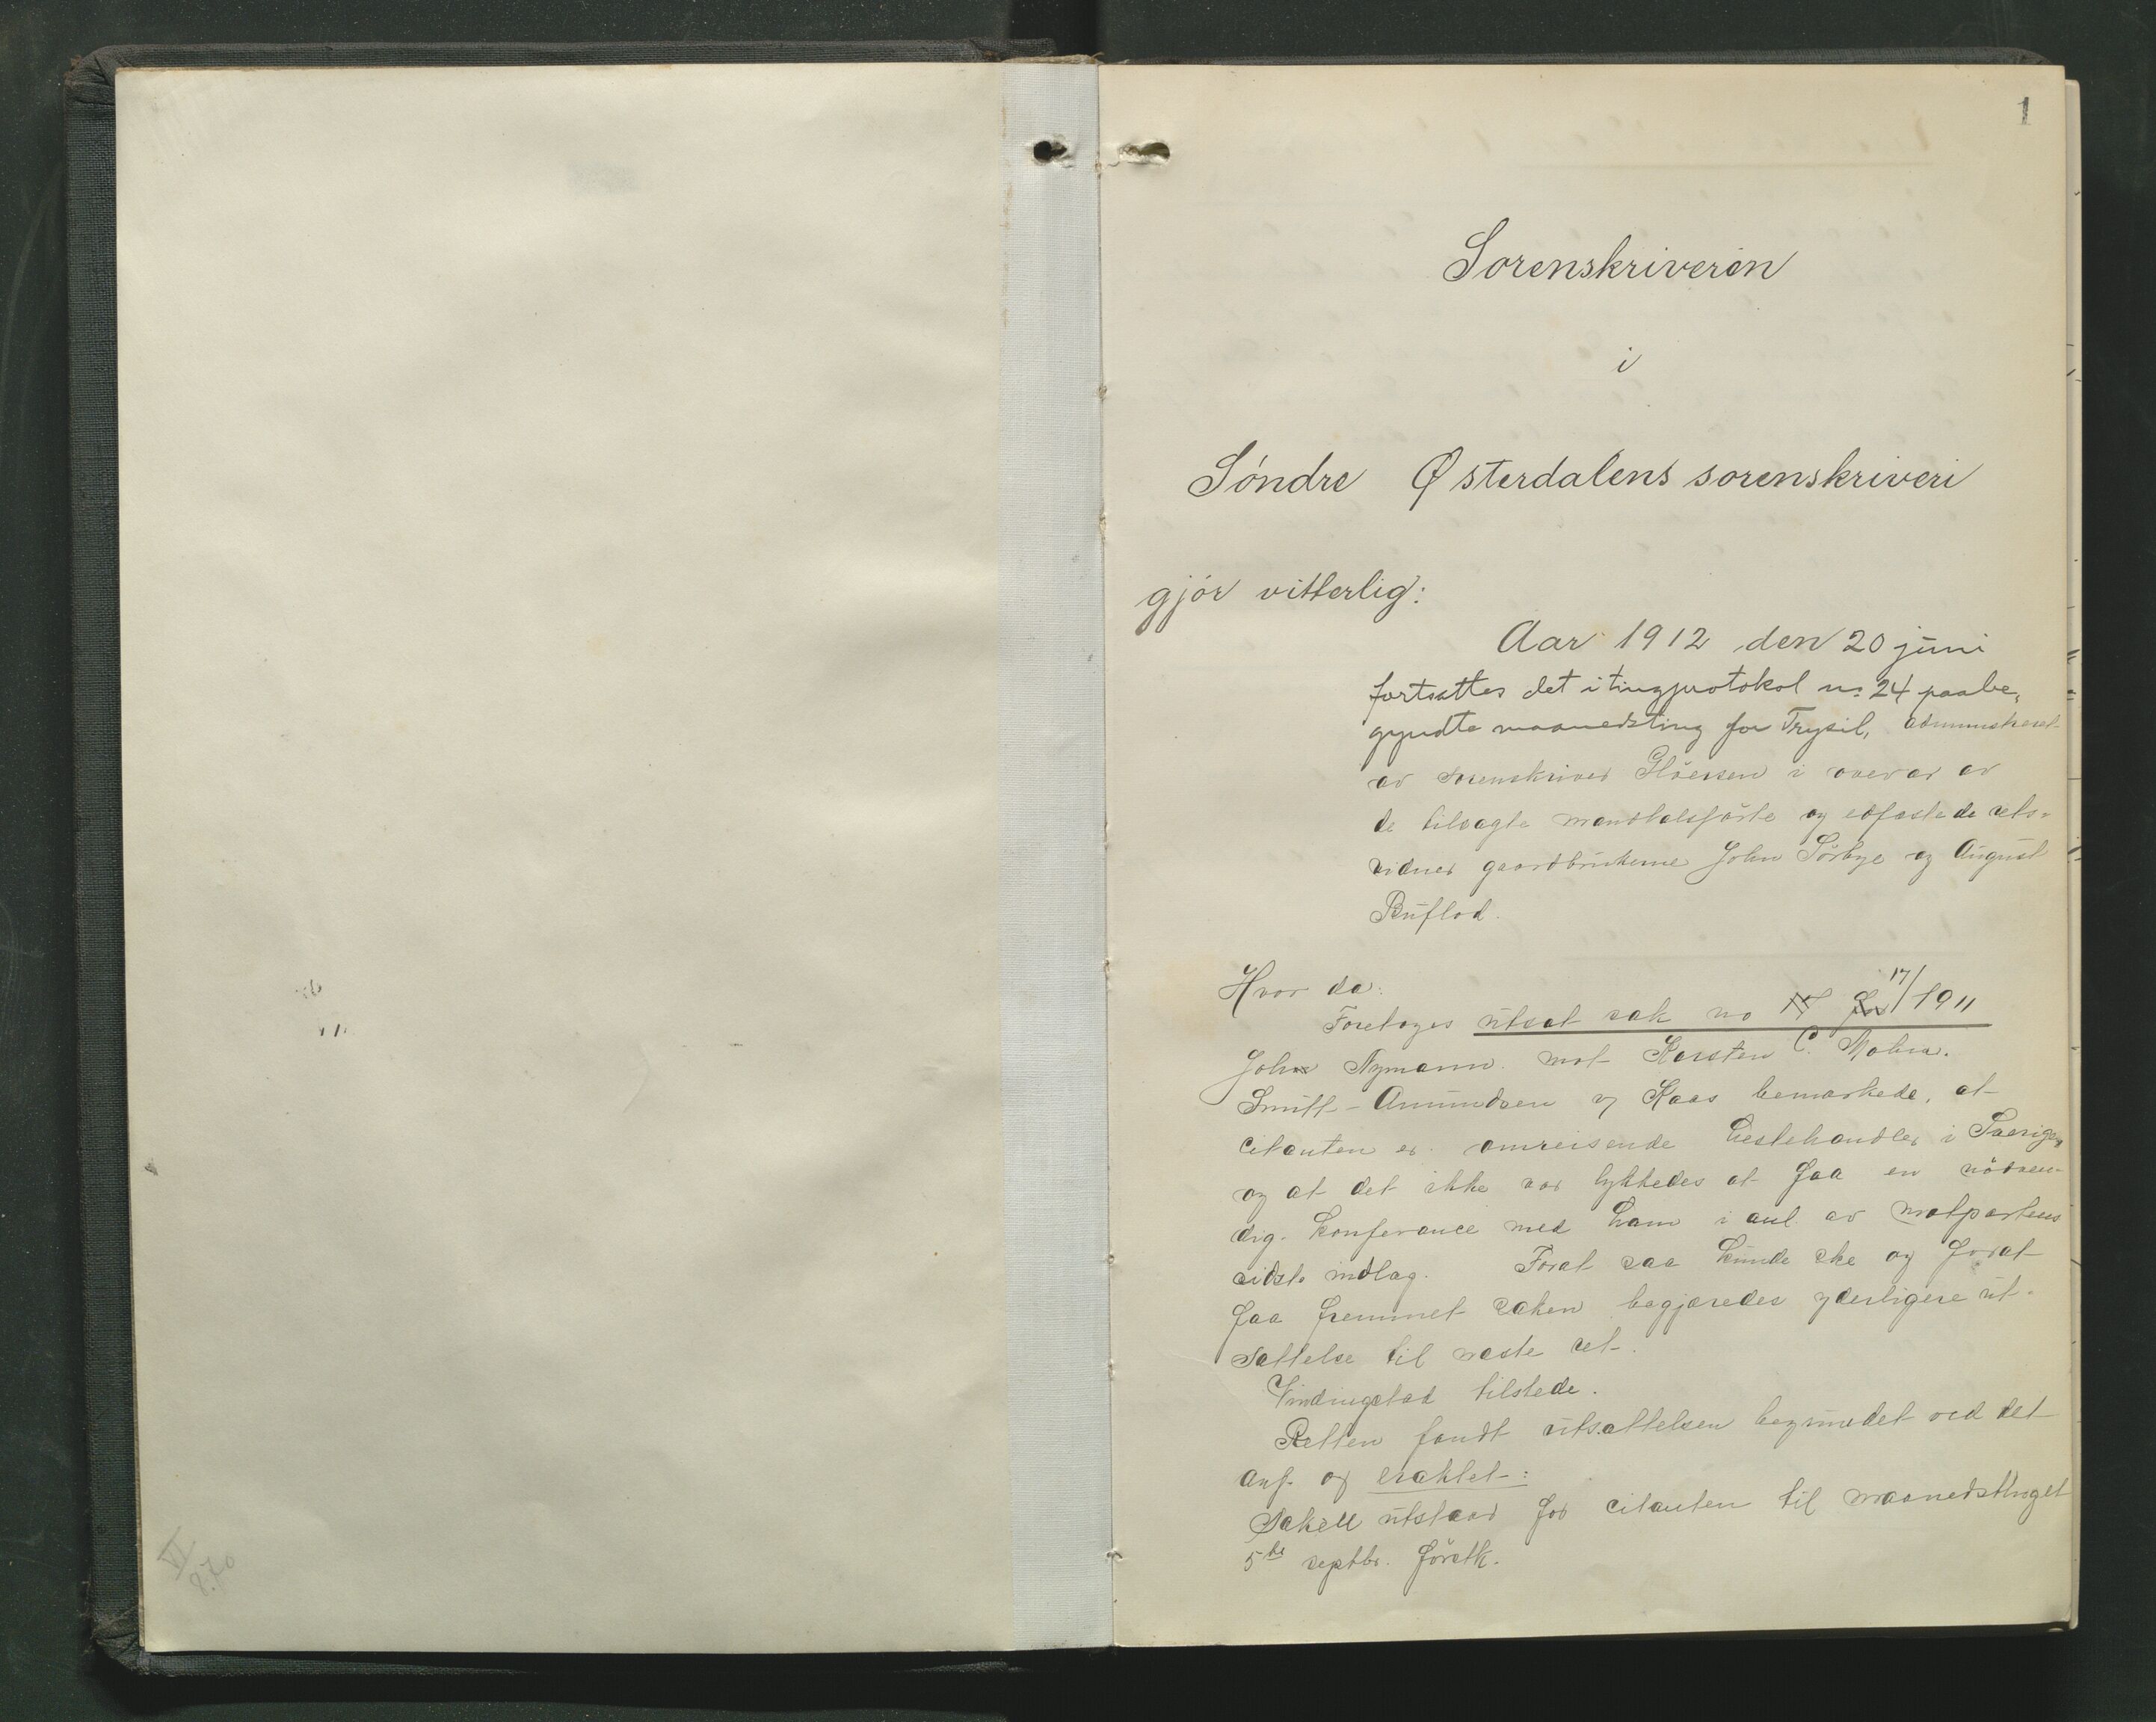 1
Sorenskriveren
i
Söndre Østerdalens sorenskriveri
gjör vitterlig:
Aar 1912 den 20 juni
fortsattes det i tingprotokol no 24 paabe„
gyndte maanedsting for Trysil, administreret
av sorenskriver Glöersen i overvær av
de tilsagte mandtalsförte og edfæstede rets-
vidner gaardbrukerne John Sörbye og August
Buflod.
Hvor da:
Foretoges utsat sak no 17/1911
John Nymann mot Karsten C. Mohn.
Smitt-Amundsen v/ Kaas bemærkede, at
citanten er omreisende hestehandler i Sverige,
og at det ikke var lykkedes at faa en nödven-
dig konferance med ham i anl. av motpartens
sidste indlæg. Forat saa kunde ske og forat
faa fremmet saken begjæredes yderligere ut-
sættelse til næste ret.
Vindingstad tilstede.
Retten fandt utsættelsen begrundet ved det
anf. og eragtet:
Saken utstaar for citanten til maanedstinget
5te septbr. förstk.
VI
870